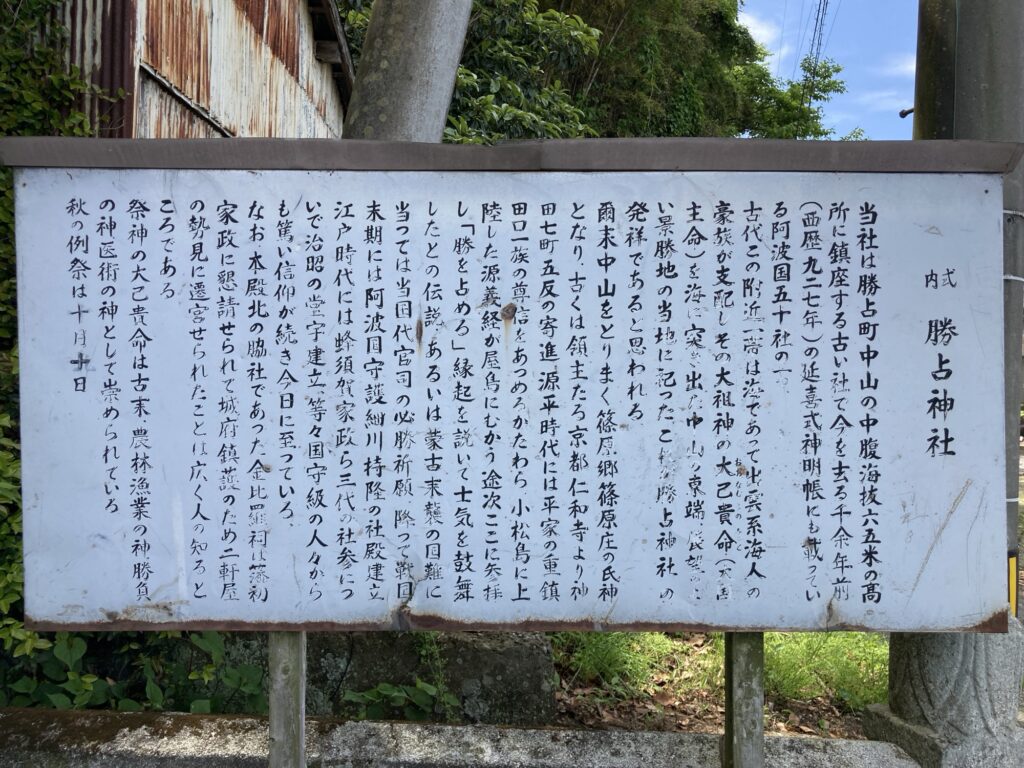 式内 勝占神社
当社は勝占町中山の中腹海抜六五米の高
所に鎮座する古い社で今を去る千余年前
(西歴九二七年)の延喜式神明帳にも載ってい
る阿波国五十社の一
古代この附近一帯は海であって出雲系海人の
豪族が支配しその大祖神の大己貴命(大国
主命)を海に突き出た中山の東端
い景勝地の当地に祀ったこ 勝占神社の
発祥であると思われる
爾来中山をとりまく篠原郷篠原庄の氏神
となり、古くは領主たる京都仁和寺より神
田七町五反の寄進、源平時代には平家の重鎮
田口一族の尊信をあつめるかたわら小松島に上
陸した源義経が屋島にむかう途次ここに矢を
し「勝を占める」縁起を説いて士気を鼓舞
したとの伝説、あるいは蒙古来襲の国難に
当っては当国代官司の必勝祈願 降って戦国
末期には阿波国守護細川持隆の社殿建立
江戸時代には蜂須賀家政ら三代の社参につ
いで治昭の堂宇建立等々国守級の人々から
も篤い信仰が続き今日に至っている。
なお、本殿北の脇社であった金比羅祠は藩初
家政に懇請せられて城府鎮護のため二軒屋
の勢見に遷宮せられたことは広く人の知ると
ころである
祭神の大己貴命は古来、農林漁業の神勝負
の神医術の神として崇められている
秋の例祭は十月十日